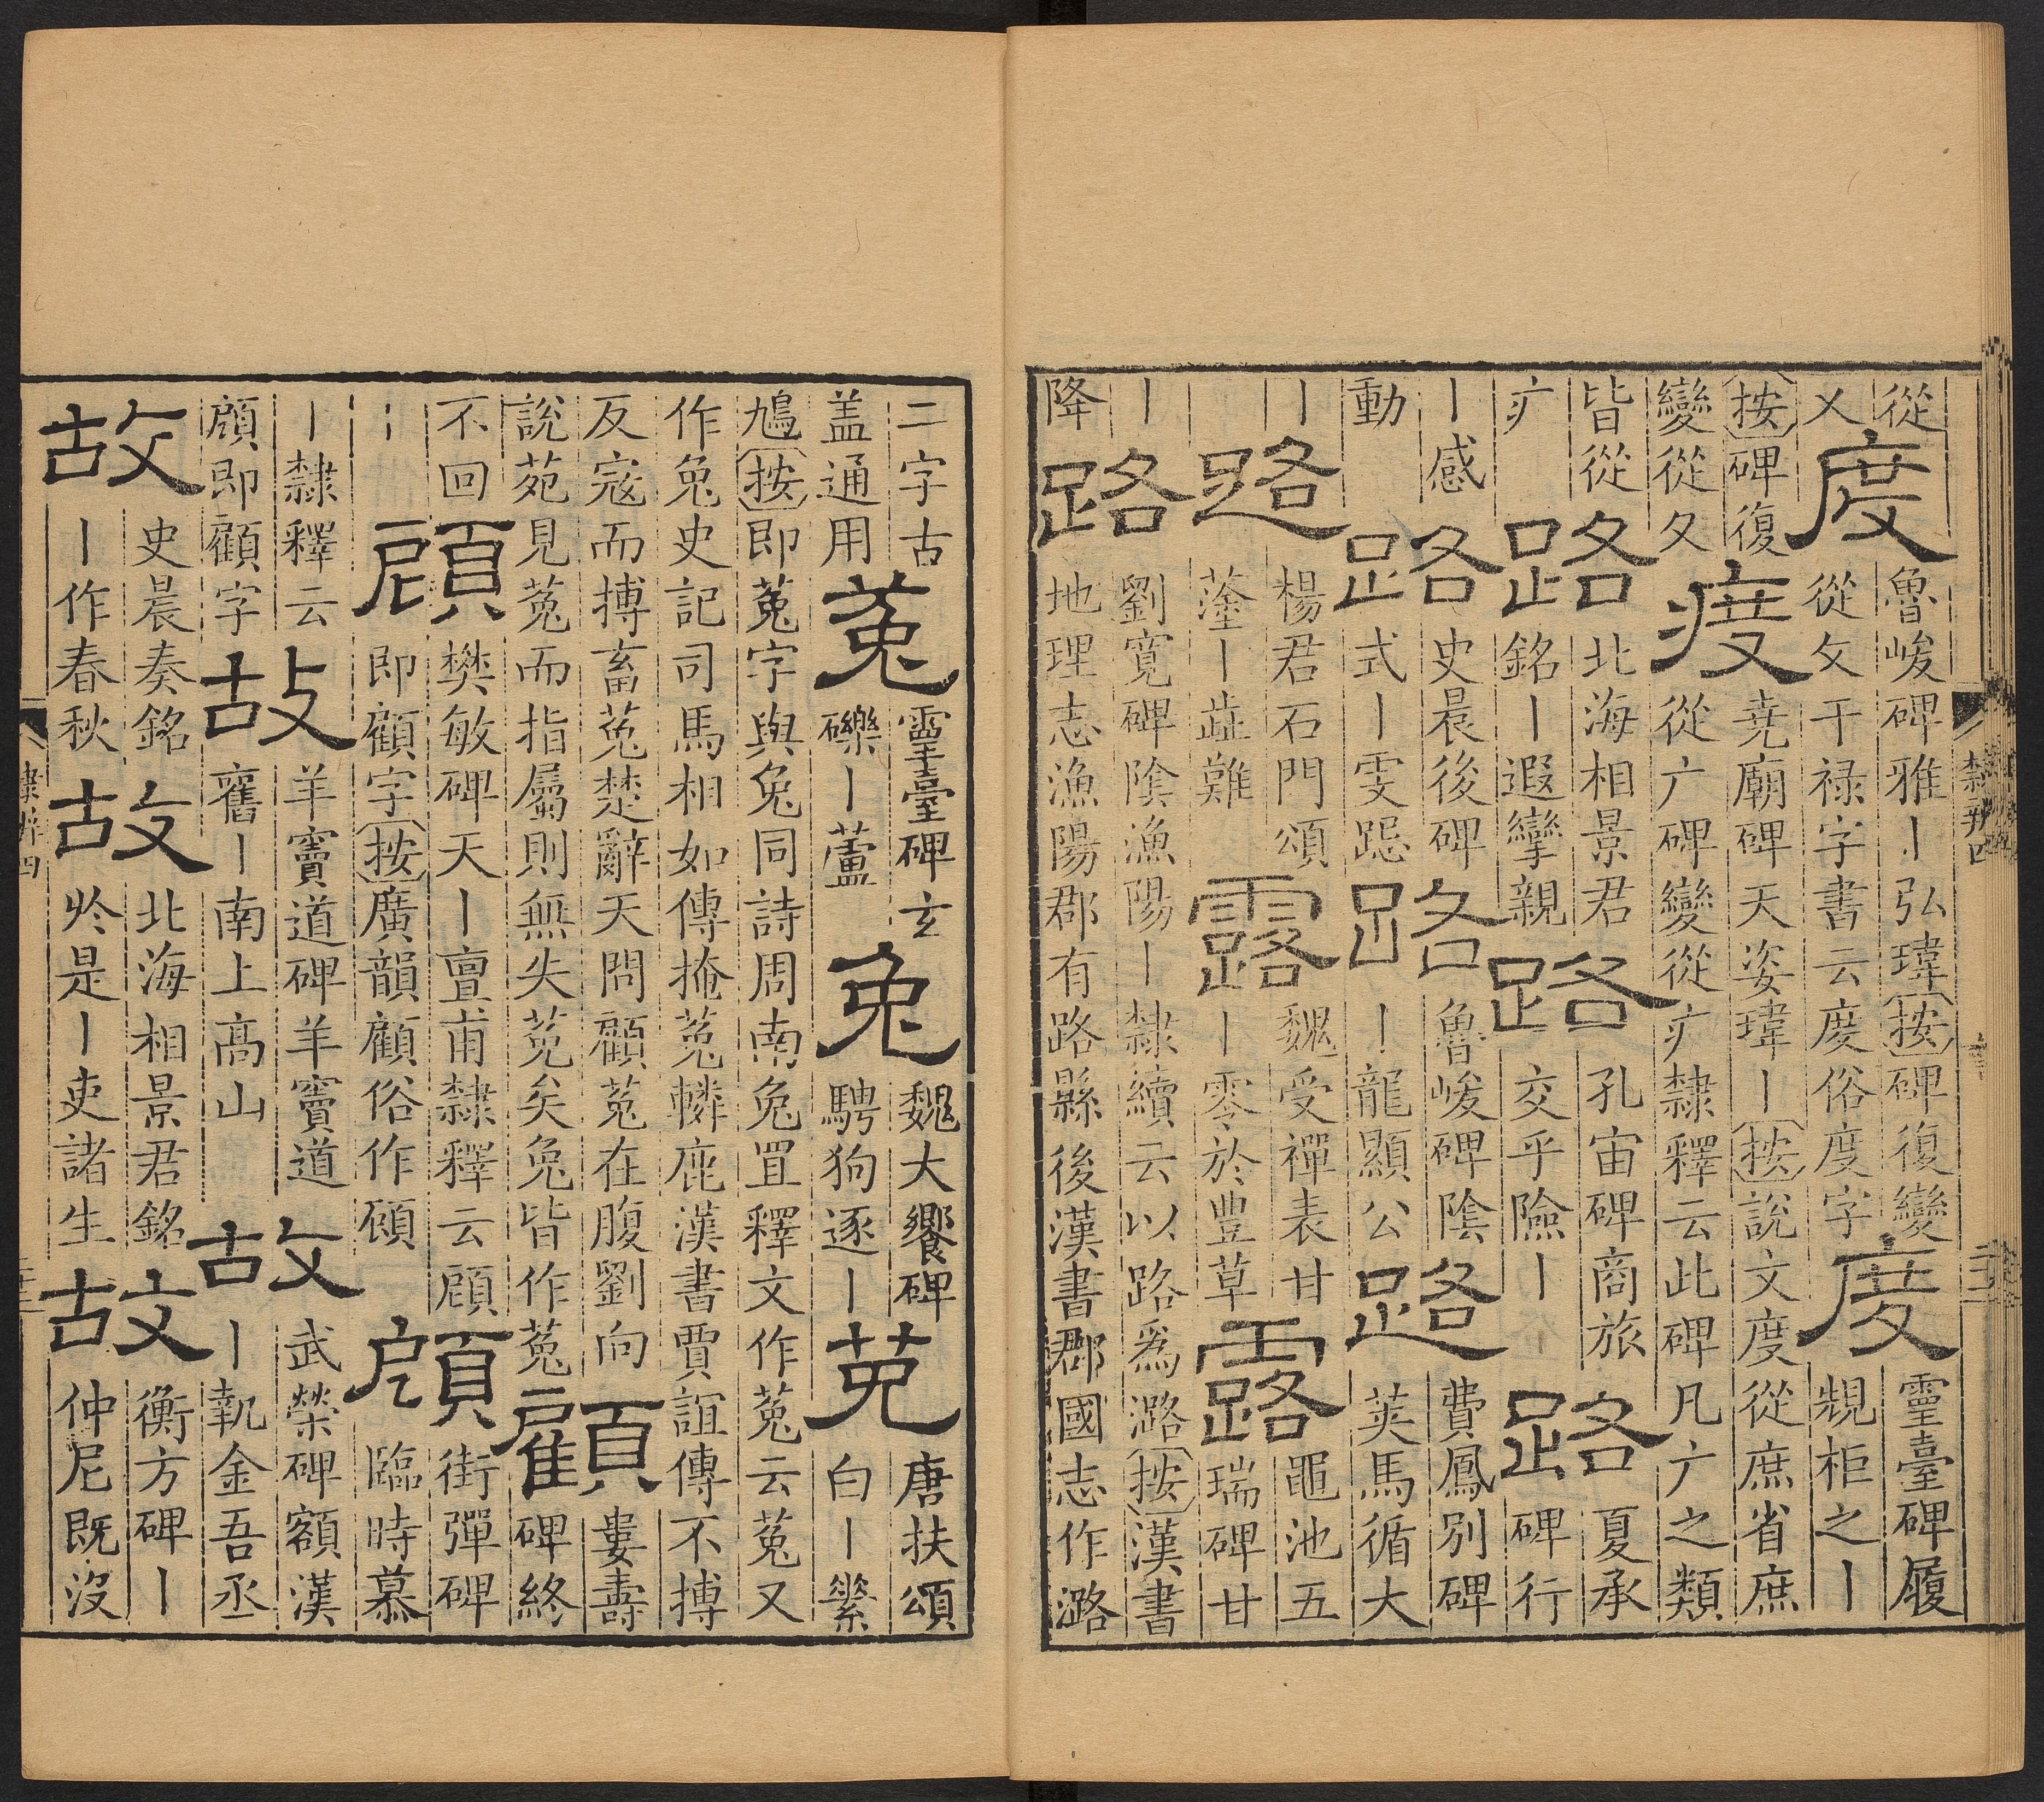 從
乂
度
魯峻碑雅丨弘瑋按碑復變
從攵干禄字書云庹俗度字
度
靈臺碑履
規柜之丨
按碑復
變從夂
度
堯廟碑天姿瑋丨按說文度從庶省庶
從广碑變從疒隸釋云此碑凡广之類
皆從
疒
路
北海相景君
銘丨遐攣親
路
孔宙碑商旅
交乎險丨
路
夏承
碑行
丨感
動
路
史晨後碑
式丨雯跽
路
魯峻碑陰
丨龍顯公
路
費鳳別碑
荚馬循大
丨
路
楊君石門頌
丨歮難
露
魏受禪表甘
丨零於豊草
露
黽池五
瑞碑甘
丨
降
路
劉寬碑陰漁陽丨隸續云以路爲潞按漢書
地理志漁陽郡有路縣後漢書郡國志作潞
隸辨四
二字古
盖通用
菟
靈臺碑玄
礫丨蘆
兔
魏大饗碑
騁狗逐丨
莬
唐扶頌
白丨縏
鳩按即菟字與兔同詩周南兔罝釋文作菟云菟又
作兔史記司馬相如傳掩菟轔鹿漢書賈誼傳不搏
反寇而搏畜菟楚辭天問顧菟在腹劉向
說苑見菟而指屬則無失菟矣兔皆作菟
顧
婁壽
碑終
不回
丨
頋
樊敏碑天丨亶甫隸釋云頋
即顧字按廣韻顧俗作頋
頋
街彈碑
臨時慕
丨隸釋云
頋即顧字
故
羊竇道碑羊竇道
舊丨南上高山
故
武榮碑額漢
丨執金吾丞
故
史晨奏銘
丨作春秋
故
北海相景君銘
於是丨吏諸生
故
衡方碑丨
仲尼既沒
隸辨四